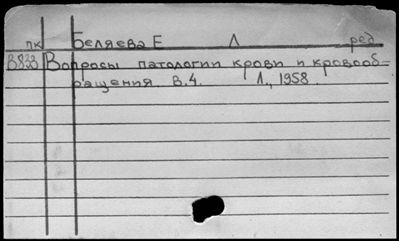 пк Беляева Е Л ред
В838 Вопросы патологии крови и кровооб-
ращения. В.4. Л., 1958.